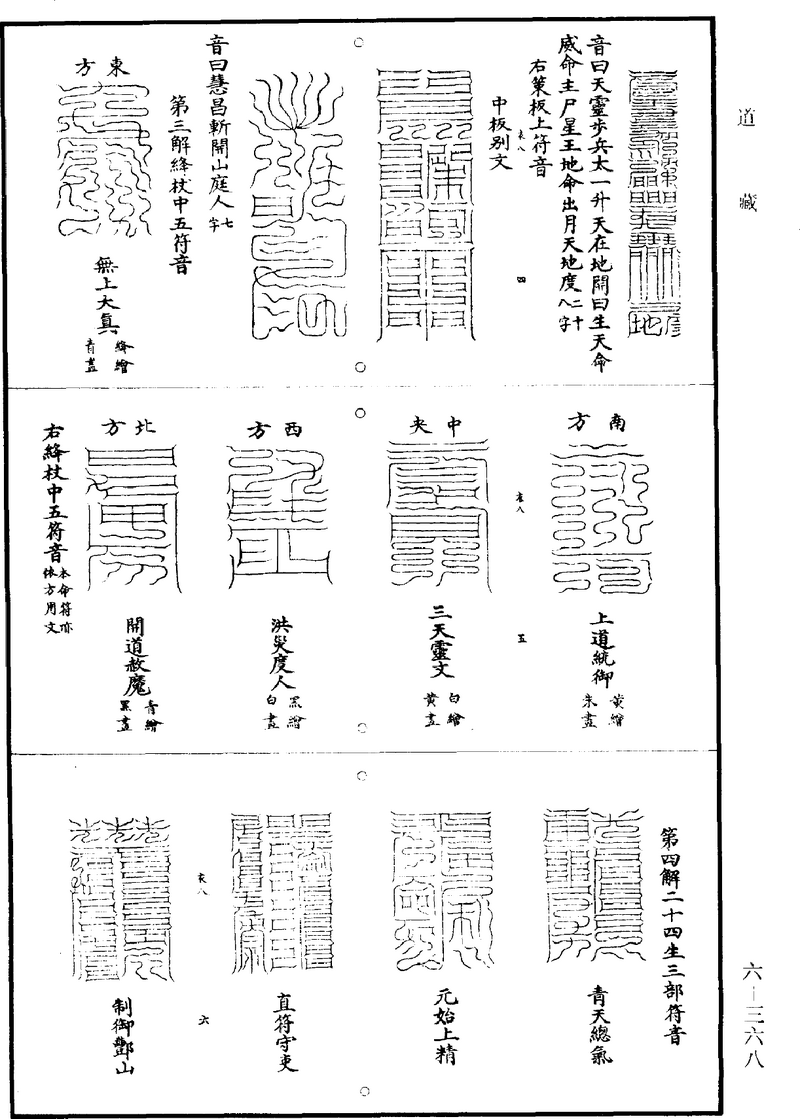 道藏
音曰天靈步兵太一升天在地開曰生天命
威命主尸星王地命出月天地度二十八字
右策板上符音
中板别文
四
音曰慧昌斬開山庭人七字
第三解絳杖中五符音
東方
無上大真
絳繪
青畫
南方
上道統御
黄繪
朱畫
五
中央
三天靈文
白繪
黄畫
西方
洪災度人
黑繪
白畫
北方
開道赦魔
青繪
黑畫
右絳杖中五符音
本命符亦
依方用文
第四解二十四生三部符音
青天總氣
元始上精
直符守吏
六
制御酆山
六—三六八